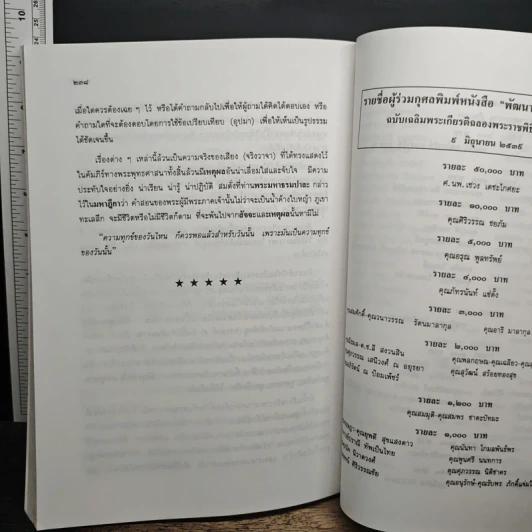 ๒๓๘
เมื่อใดควรต้องเฉย ๆ ไว้ หรือได้คำถามกลับไปเพื่อให้ผู้ถามได้คิดได้ตอบเอง หรือ
คำถามใดที่จะต้องตอบโดยการใช้ข้อเปรียบเทียบ (อุปมา) เพื่อให้เห็นเป็นรูปธรรม
ได้ชัดเจนขึ้น
เรื่องต่าง ๆ เหล่านี้ล้วนเป็นความจริงของเสียง (จริงวาจา) ที่ได้ทรงแสดงไว้
ในคัมภีร์ทางพระพุทธศาสนาทั้งสิ้นล้วนมีเหตุผลอันน่าเลื่อมใสและจับใจ มีความ
ประทับใจอย่างยิ่ง น่าเรียน น่ารู้ น่าปฏิบัติ สมดั่งที่ท่านพระมหาธรรมปาละ กล่าว
ไว้ในมหาฎีกาว่า คำสอนของพระผู้มีพระภาคเจ้านั้นไม่ว่าจะเป็นน้ำค้างใบหญ้า ภูเขา
ทะเลลึก จะมีชีวิตหรือไม่มีชีวิตก็ตาม ที่จะพ้นไปจากสัจจะและเหตุผลนั้นหามีไม่
"ความทุกข์ของวันไหน ก็ควรพอแล้วสำหรับวันนั้น เพราะมันเป็นความทุกข์
ของวันนั้น"
★ ★ ★ ★ ★
รายชื่อผู้ร่วมกุศลพิมพ์หนังสือ "พัฒนา
ฉบับเฉลิมพระเกียรติฉลองพระราชพิธี
๙ มิถุนายน ๒๕๓๙
รายละ ๕๐,๐๐๐ บาท
ศ.นพ.เชวง เดชะไกศยะ
รายละ ๑๐,๐๐๐ บาท
คุณศิริวรรณ ชอภัม
รายละ ๕,๐๐๐ บาท
คุณอรุณ พูลทรัพย์
รายละ ๔,๐๐๐ บาท
คุณภัทรนันท์ แซ่ตั้ง
รายละ ๓,๐๐๐ บาท
คุณวนาวรรณ รัตนมาลากุล คุณอารี มาลากุล
รายละ ๒,๐๐๐ บาท
ด.ช.สี สงวนสิน
เสนีวงศ์ ณ อยุธยา คุณสุวัฒน์ สร้อยทองสุข
ณ ป้อมเพ็ชร์
รายละ ๑,๒๐๐ บาท
คุณสมมุติ-คุณสมพร ชาตะปัทมะ
รายละ ๑,๐๐๐ บาท
คุณยุพดี สุขแสงดาว คุณนันทา โกมลพันธ์พร
ทัพเป็นไทย คุณพูนศรี นนทการ
นิวาตวงศ์ คุณศุภวรรณ นิติชาคร
ศิริวรรณชัย